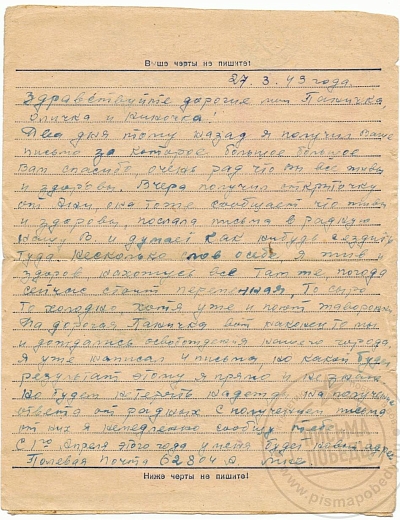 Выше черты не пишите!
27.3.43 года.
Здравствуйте дорогие мои Папичка,
Оличка и Ниночка!
Два дня тому назад я получил Ваше
письмо за которое большое большое
Вам спасибо, очень рад что Вы все живы
и здоровы. Вчера получил открыточку
от она тоже сообщает что жива
и здорова, послала письма в родную
нашу В. и думает как нибудь съездить
туда. Несколько слов о себе, я жив и
здоров нахожусь все там же, погода
сейчас стоит переменная, то сыро
то холодно, хотя уже и поют жаворонки.
Да дорогая Папичка вот наконец то мы
и дождались освобождения нашего города,
я уже написал 4 письма, но какой будет
результат этому я прямо и не знаю
но будем не терять надежды на получение
ответа от родных. С получением письма
от них я немедленно сообщу
С 1го Апреля этого года у меня будет адрес
Полевая Почта 62804
Ниже черты не пишите!
ПИСЬМА ПОБЕДЫ
www.pismapobedy.